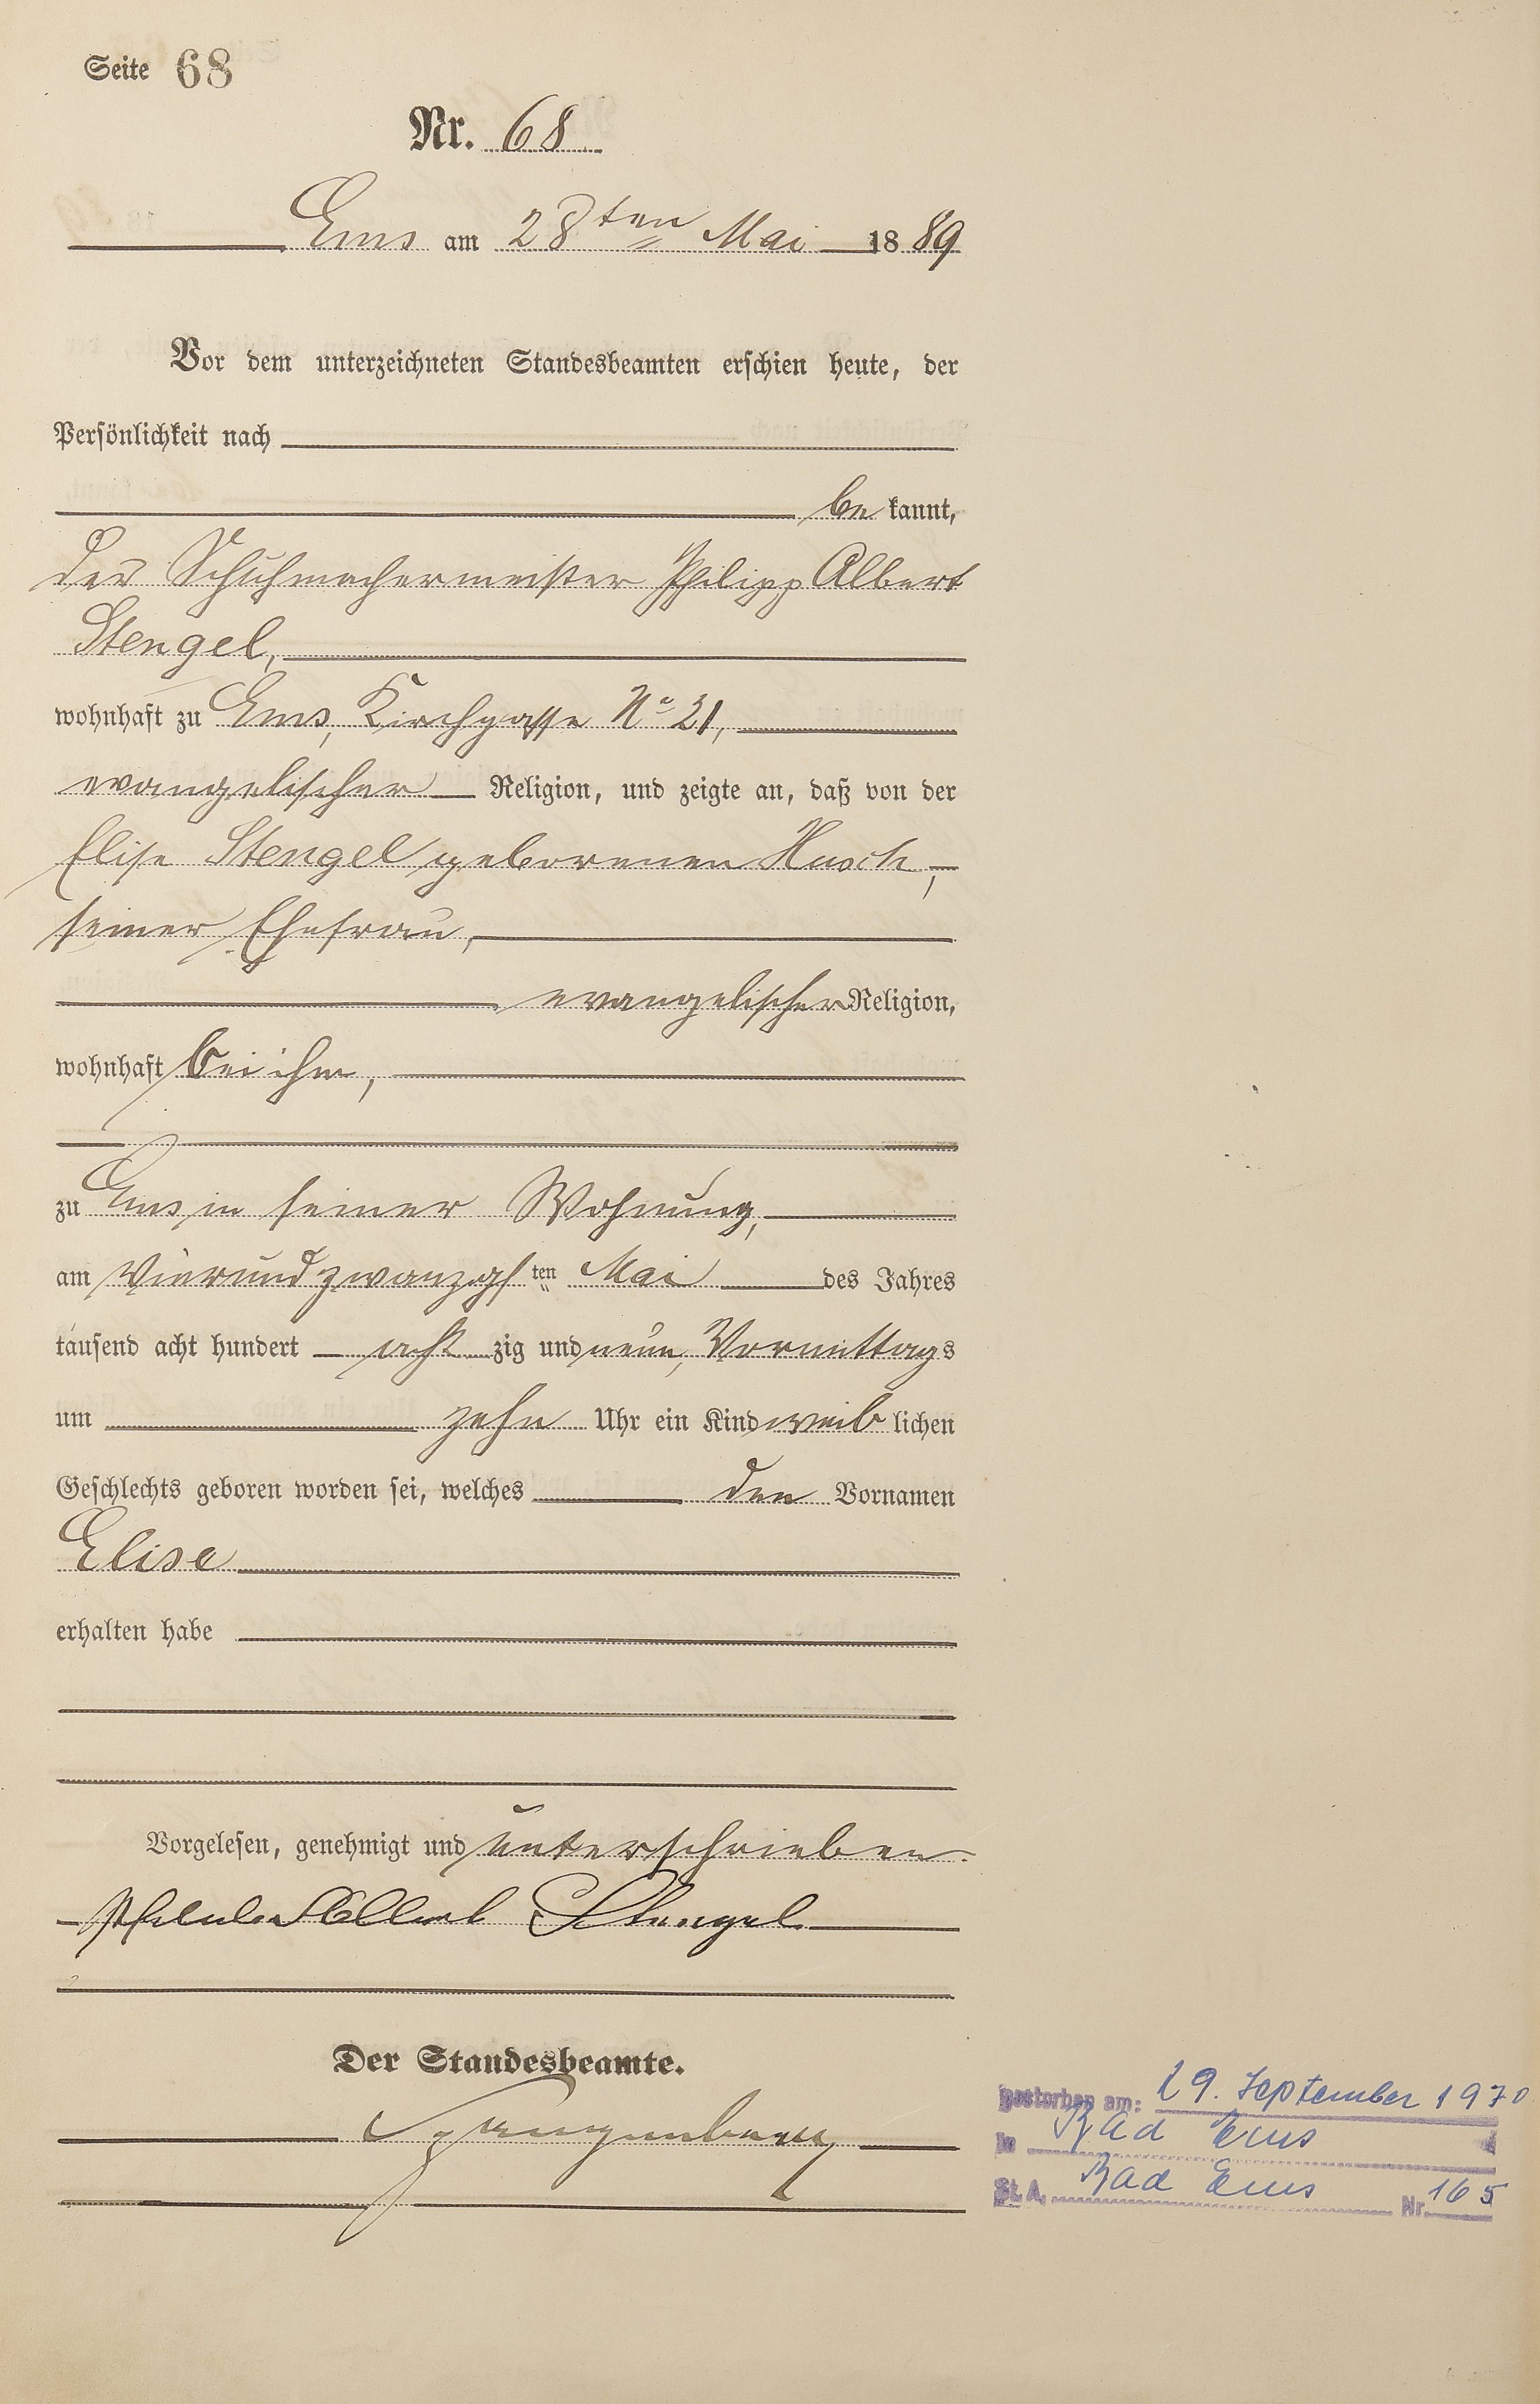 Seite 68
Nr. 68
Ems am 28ten Mai 1889
Vor dem unterzeichneten Standesbeamten erschien heute, der
Persönlichkeit nach
bekannt,
der Schuhmachermeister Philipp Albert
Stengel,
wohnhaft zu Ems, Kirchgasse No 21,
evangelischer Religion, und zeigte an, daß von der
Elise Stengel geborenen
seiner Ehefrau,
evangelischer Religion,
wohnhaft bei ihm,
zu Ems in seiner Wohnung,
am vierundzwanzigsten Mai des Jahres
tausend acht hundert achtzig und neun, Vormittags
um zehn Uhr ein Kind weiblichen
Geschlechts geboren worden sei, welches den Vornamen
Elise
erhalten habe
Vorgelesen, genehmigt und unterschrieben.
Albert Stengel
Der Standesbeamte.
gestorben am: 29. September 1970
in Bad Ems
St. A. Bad Ems Nr. 165